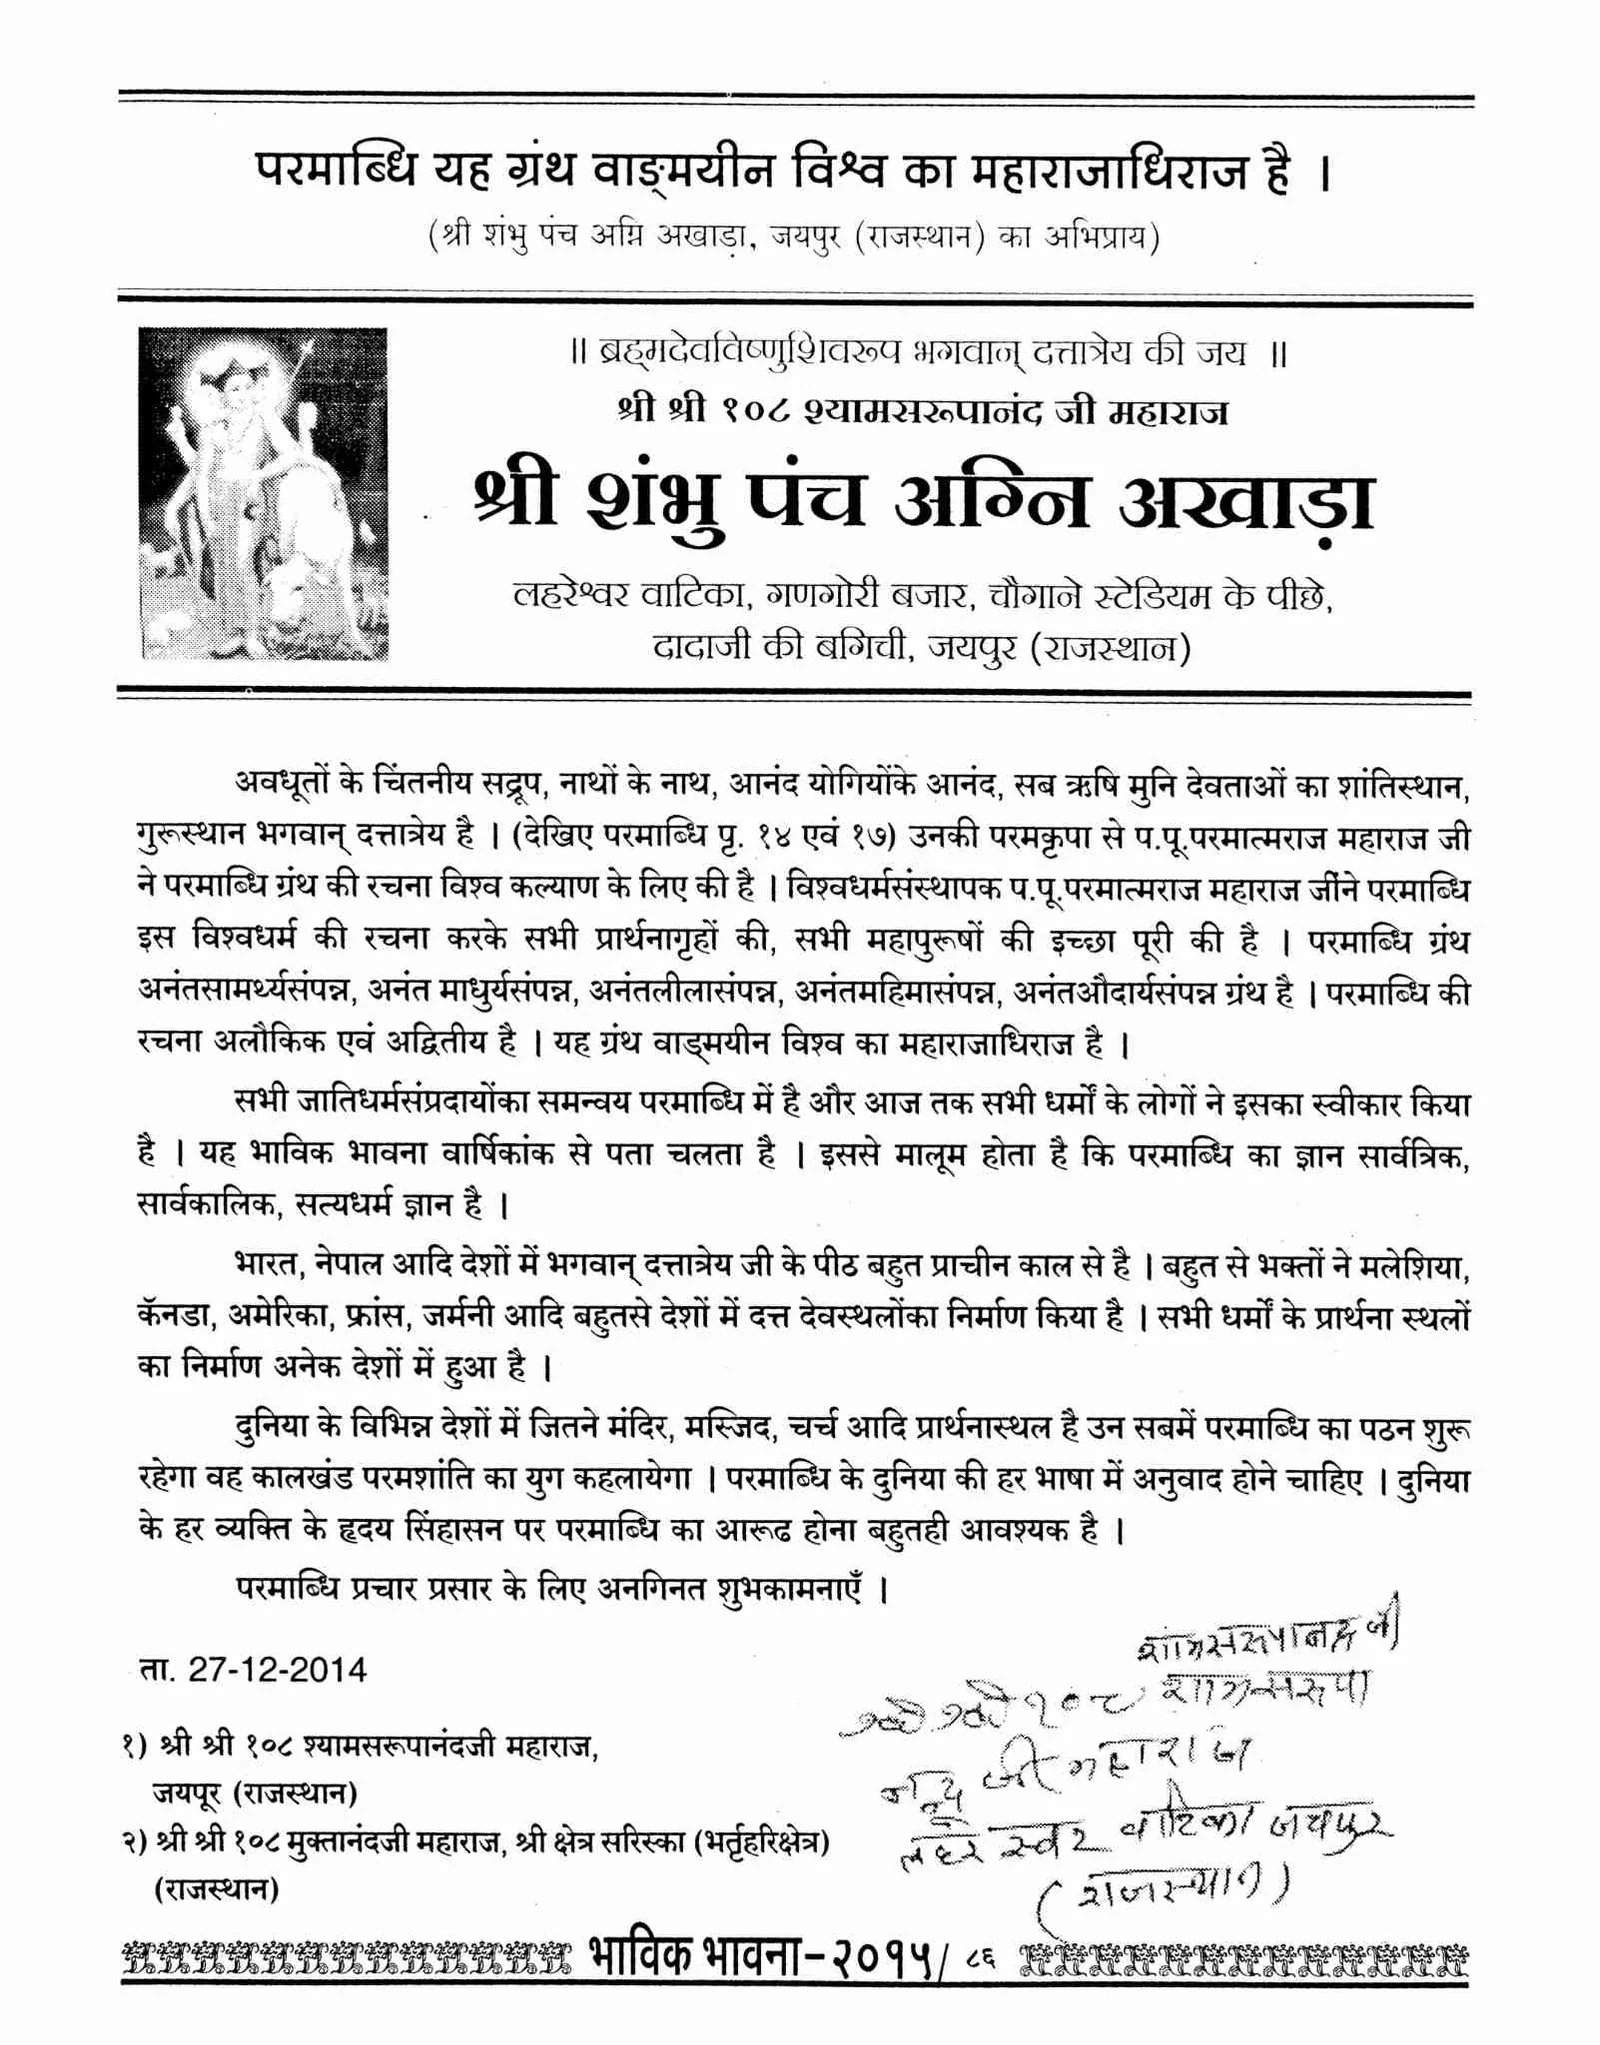 परमाब्धि यह ग्रंथ वाङ्मयीन विश्व का महाराजाधिराज है ।
(श्री शंभु पंच अग्नि अखाड़ा, जयपुर (राजस्थान) का अभिप्राय)
॥ ब्रह्मदेवविष्णुशिवरूप भगवान् दत्तात्रेय की जय ॥
श्री श्री १०८ श्यामसरूपानंद जी महाराज
श्री शंभु पंच अग्नि अखाड़ा
लहरेश्वर वाटिका, गणगोरी बजार, चौगाने स्टेडियम के पीछे,
दादाजी की बगिची, जयपुर (राजस्थान)
अवधूतों के चिंतनीय सद्रूप, नाथों के नाथ, आनंद योगियोंके आनंद, सब ऋषि मुनि देवताओं का शांतिस्थान,
गुरूस्थान भगवान् दत्तात्रेय है । (देखिए परमाब्धि पृ. १४ एवं १७) उनकी परमकृपा से प.पू.परमात्मराज महाराज जी
ने परमाब्धि ग्रंथ की रचना विश्व कल्याण के लिए की है । विश्वधर्मसंस्थापक प.पू.परमात्मराज महाराज जींने परमाब्धि
इस विश्वधर्म की रचना करके सभी प्रार्थनागृहों की, सभी महापुरूषों की इच्छा पूरी की है । परमाब्धि ग्रंथ
अनंतसामर्थ्यसंपन्न, अनंत माधुर्यसंपन्न, अनंतलीलासंपन्न, अनंतमहिमासंपन्न, अनंतऔदार्यसंपन्न ग्रंथ है । परमाब्धि की
रचना अलौकिक एवं अद्वितीय है । यह ग्रंथ वाड्मयीन विश्व का महाराजाधिराज है ।
सभी जातिधर्मसंप्रदायोंका समन्वय परमाब्धि में है और आज तक सभी धर्मों के लोगों ने इसका स्वीकार किया
है । यह भाविक भावना वार्षिकांक से पता चलता है । इससे मालूम होता है कि परमाब्धि का ज्ञान सार्वत्रिक,
सार्वकालिक, सत्यधर्म ज्ञान है ।
भारत, नेपाल आदि देशों में भगवान् दत्तात्रेय जी के पीठ बहुत प्राचीन काल से है । बहुत से भक्तों ने मलेशिया,
कॅनडा, अमेरिका, फ्रांस, जर्मनी आदि बहुतसे देशों में दत्त देवस्थलोंका निर्माण किया है । सभी धर्मों के प्रार्थना स्थलों
का निर्माण अनेक देशों में हुआ है ।
दुनिया के विभिन्न देशों में जितने मंदिर, मस्जिद, चर्च आदि प्रार्थनास्थल है उन सबमें परमाब्धि का पठन शुरू
रहेगा वह कालखंड परमशांति का युग कहलायेगा । परमाब्धि के दुनिया की हर भाषा में अनुवाद होने चाहिए । दुनिया
के हर व्यक्ति के हृदय सिंहासन पर परमाब्धि का आरूढ होना बहुतही आवश्यक है ।
परमाब्धि प्रचार प्रसार के लिए अनगिनत शुभकामनाएँ ।
ता. 27-12-2014
१) श्री श्री १०८ श्यामसरूपानंदजी महाराज,
जयपूर (राजस्थान)
२) श्री श्री १०८ मुक्तानंदजी महाराज, श्री क्षेत्र सरिस्का (भर्तृहरिक्षेत्र)
(राजस्थान)
१०८
जी महाराज
वाटिका जयपुर
(राजस्थान)
भाविक भावना-२०१५/ ८६